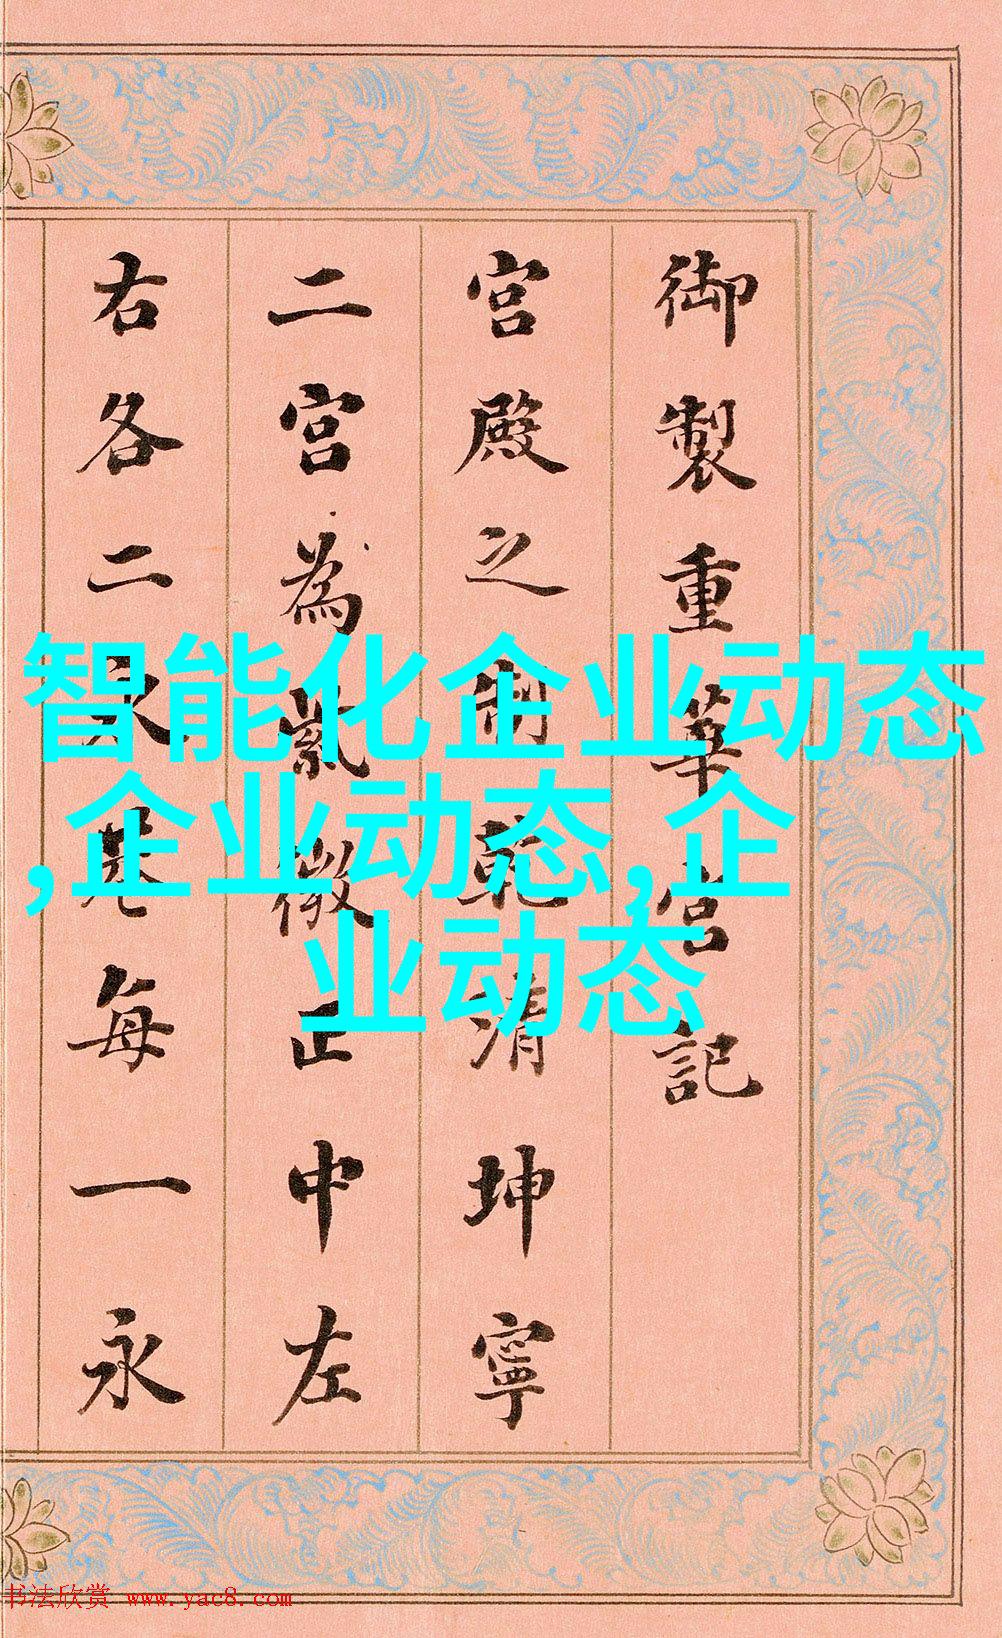 御製重華宮記
宮殿之制乾清坤寧
二宮為紫微正中左
右各二永巷每一永
智能化企业动态
,企业动态,企
业动态
书法欣赏 www.yac8.com